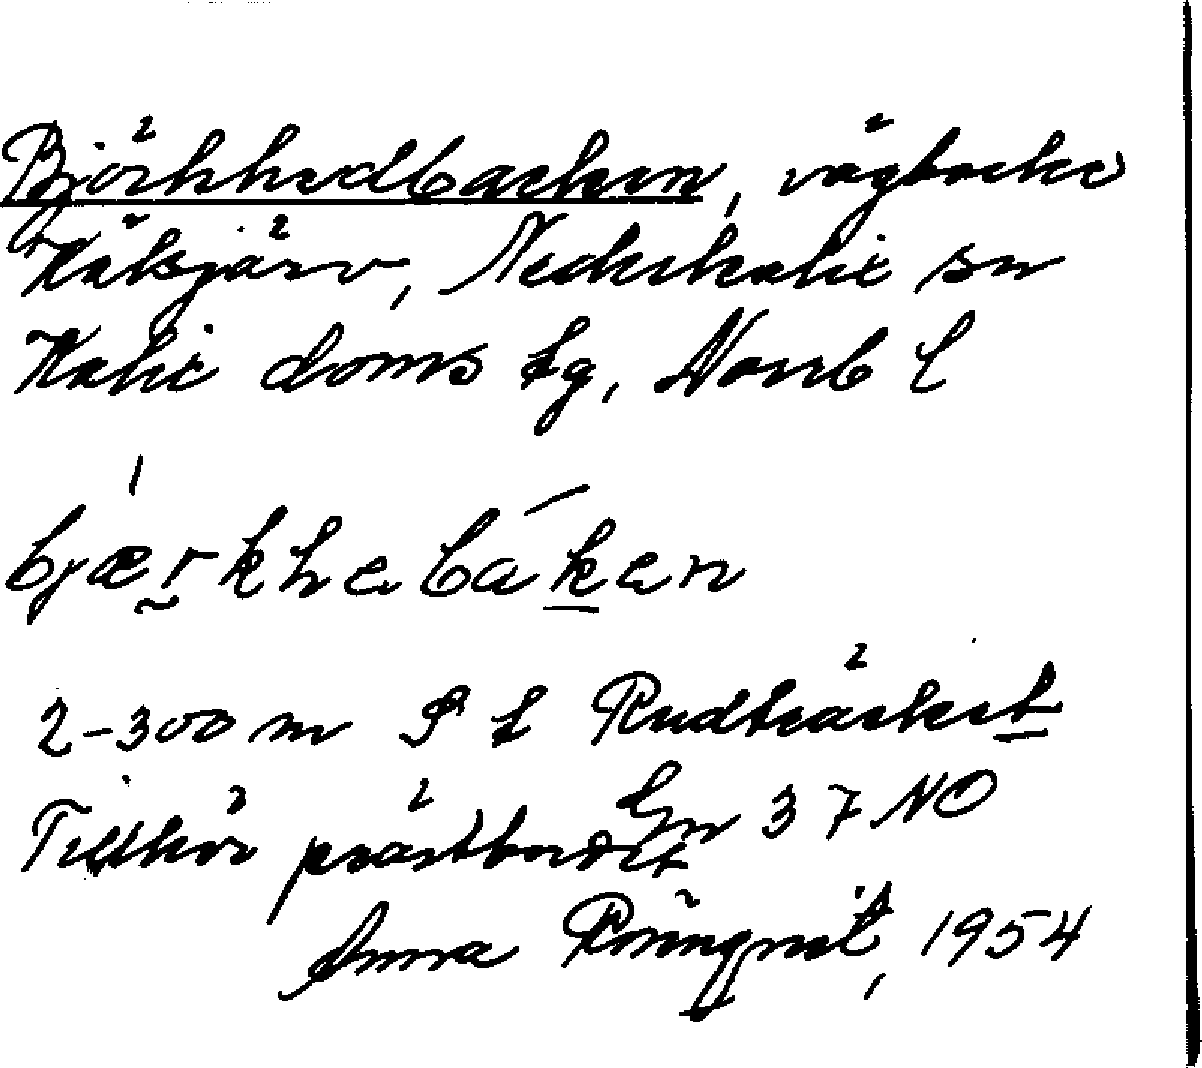 Björkhedbacken, vägbacke
Hälsjärv, Nederkalix sn
Kalix doms tg, Norrb l
bjærkhebákan
2-300 m S t Rudträsket
Gn 37 NO
Tillhör prästbordet
Anna Rönnqvist, 1954